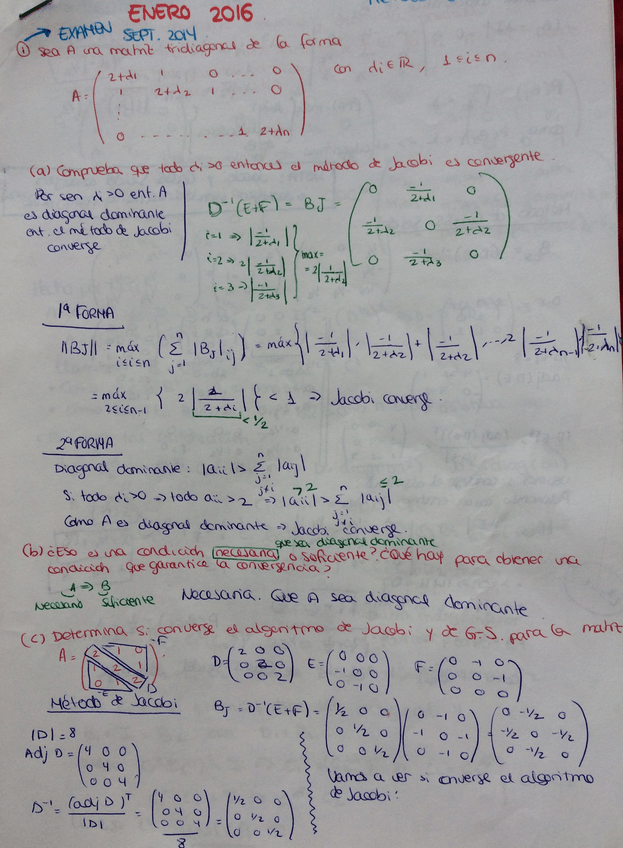 ENERO 2016
→ EXAMEN SEPT. 2014
① Sea A una matriz tridiagonal de la forma
A = ( 2+λ1 1 0 ... 0
1 2+λ2 1 ... 0
⋮
0 ........ 1 2+λn )
con λi ∈ ℝ, 1≤i≤n.
(a) Comprueba que todo λi>0 entonces el método de Jacobi es convergente.
Por ser λi>0 ent. A
es diagonal dominante
ent. el método de Jacobi
converge
D⁻¹(E+F) = BJ = ( 0 -1/(2+λ1) 0
-1/(2+λ2) 0 -1/(2+λ2)
0 -1/(2+λ3) 0 )
i=1 ⇒ |-1/(2+λ1)|
i=2 ⇒ 2|-1/(2+λ2)|
i=3 ⇒ |-1/(2+λ3)|
max = = 2|-1/(2+λ2)|
1ª FORMA
||BJ|| = máx 1≤i≤n ( Σ j=1 n |BJ|ij ) = máx { |-1/(2+λ1)|, |-1/(2+λ2)| + |-1/(2+λ2)|, ..., 2 |-1/(2+λn-1)|, |-1/(2+λn)|
= máx 2≤i≤n-1 { 2 |1/(2+λi)| } < 1 ⇒ Jacobi converge.
< 1/2
2ª FORMA
Diagonal dominante: |aii| > Σ j=1 j≠i n |aij|
Si todo λi>0 ⇒ todo aii>2 ⇒ |aii| > Σ j=1 j≠i n |aij|
>2 ≤2
Como A es diagonal dominante ⇒ Jacobi converge.
que sea diagonal dominante
(b) ¿Eso es una condición necesaria o suficiente? ¿Qué hay para obtener una
condición que garantice la convergencia?
A ⇒ B
Necesario Suficiente
Necesaria. Que A sea diagonal dominante
(c) Determina si converge el algoritmo de Jacobi y de G-S. para la matriz
A = ( 2 1 0
1 2 1
0 1 2 )
-F
-E
D
D = ( 2 0 0
0 2 0
0 0 2 )
E = ( 0 0 0
-1 0 0
0 -1 0 )
F = ( 0 -1 0
0 0 -1
0 0 0 )
Método de Jacobi
BJ = D⁻¹(E+F) = ( 1/2 0 0
0 1/2 0
0 0 1/2 ) ( 0 -1 0
-1 0 -1
0 -1 0 ) = ( 0 -1/2 0
-1/2 0 -1/2
0 -1/2 0 )
|D| = 8
Adj D = ( 4 0 0
0 4 0
0 0 4 )
D⁻¹ = (adj D)ᵀ / |D| = ( 4 0 0
0 4 0
0 0 4 ) / 8 = ( 1/2 0 0
0 1/2 0
0 0 1/2 )
Vamos a ver si converge el algoritmo
de Jacobi: